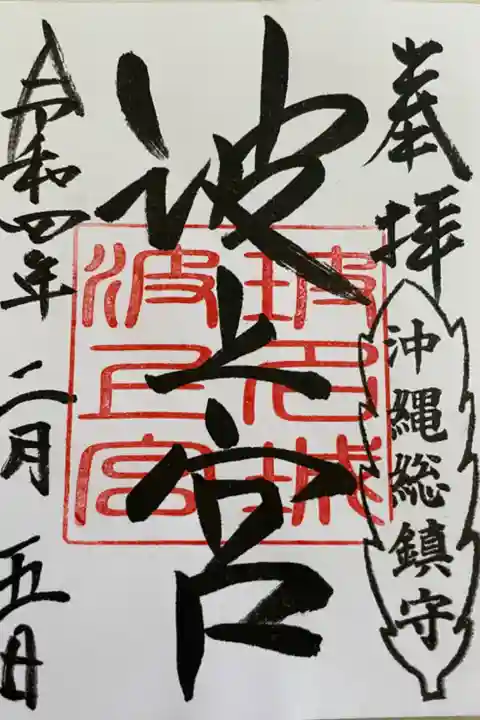 奉拝
沖縄総鎮守
波上宮
波上宮
令和四年二月五日